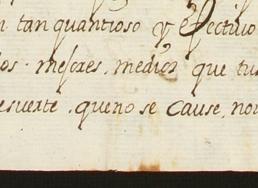 n tan quantioso y efectivo
los. mejores, medios que tu
esuerte. que no se cause, nov